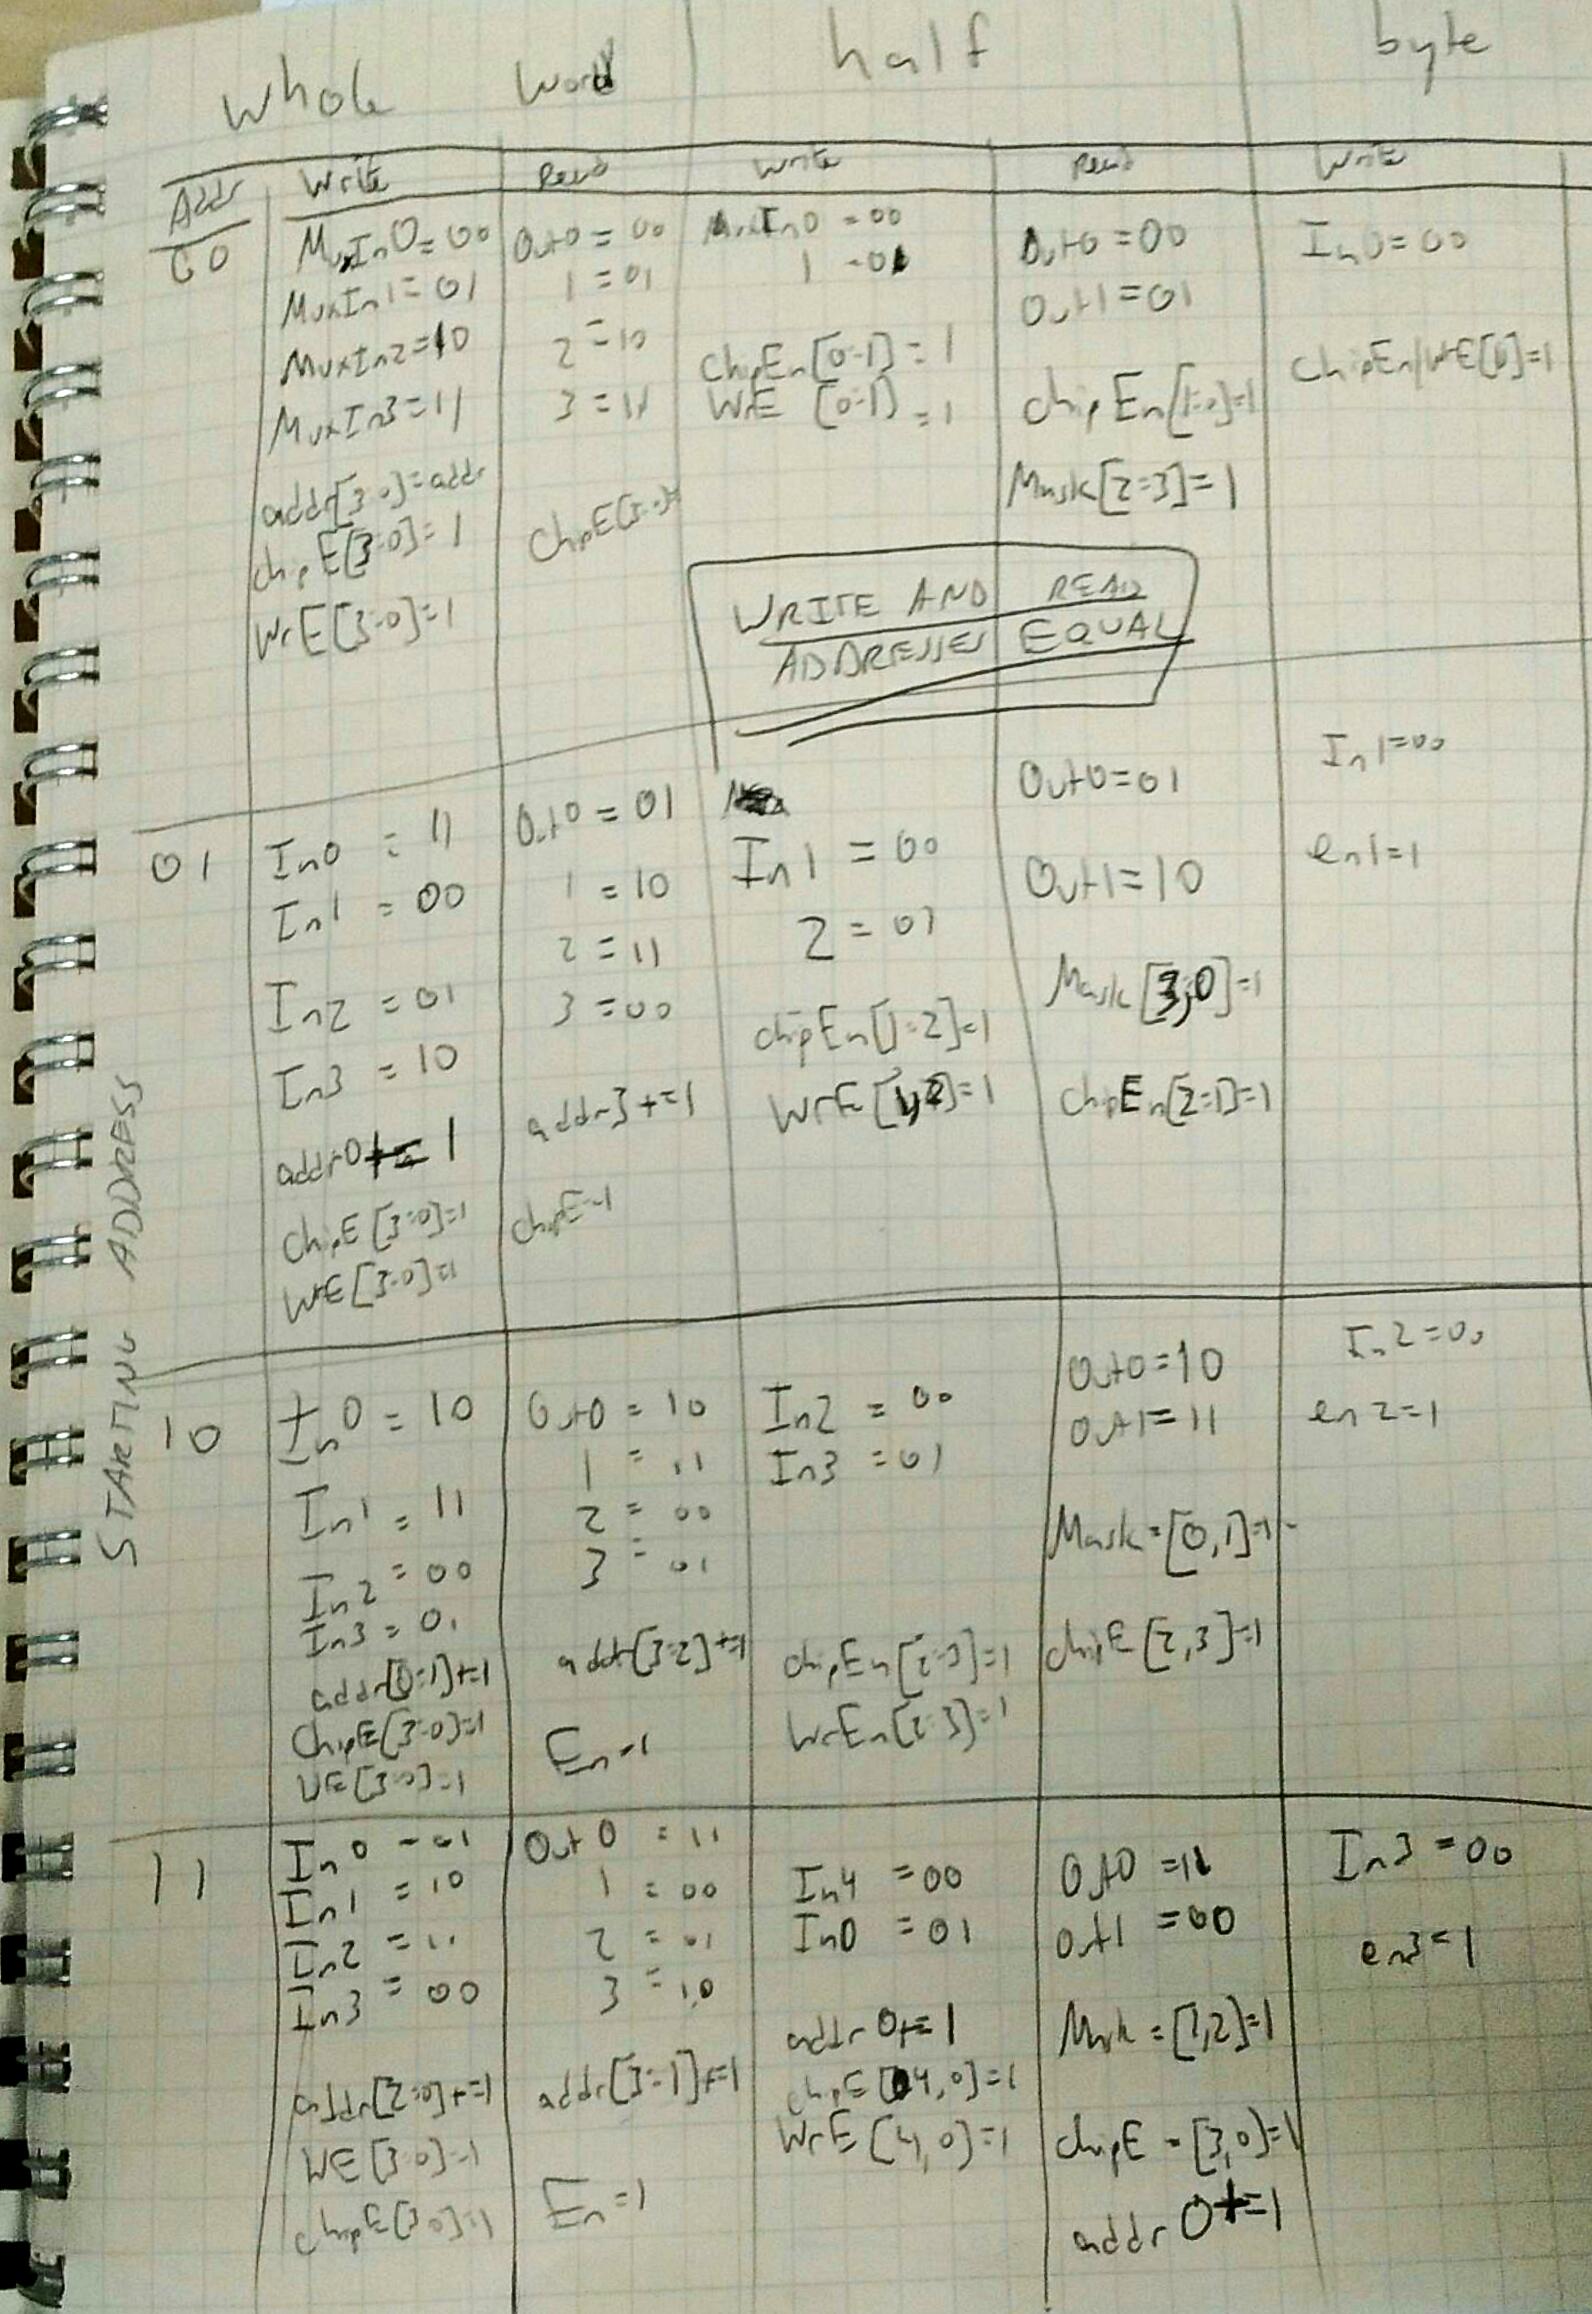 Whole Word half byte
Addr Write Read Write Read Write
STARTING ADDRESS
00
MuxIn0=00
MuxIn1=01
MuxIn2=10
MuxIn3=11
addr[3:0]=addr
chipE[3:0]=1
WrE[3:0]=1
Out0=00
1=01
2=10
3=11
MuxIn0=00
1=01
chipEn[0-1]=1
WrE[0-1]=1
Out0=00
Out1=01
chipEn[1:0]=1
Mask[2:3]=1
In0=00
WRITE AND READ
ADDRESSES EQUAL
01
In0=11
In1=00
In2=01
In3=10
addr0+=1
chipE[3:0]=1
WrE[3:0]=1
Out0=01
1=10
2=11
3=00
addr3+=1
chipE=1
In1=00
2=01
chipEn[1:2]=1
WrE[1,2]=1
Out0=01
Out1=10
Mask[3,0]=1
chipEn[2:1]=1
In1=00
en1=1
10
In0=10
In1=11
In2=00
In3=01
addr[0:1]+=1
ChipE[3:0]=1
WE[3:0]=1
Out0=10
1=11
2=00
3=01
addr[3:2]+=1
En=1
In2=00
In3=01
chipEn[2:3]=1
WrEn[2:3]=1
Out0=10
Out1=11
Mask=[0,1]=1
chipE[2,3]=1
In2=00
en2=1
11
In0=01
In1=10
In2=11
In3=00
addr[2:0]+=1
WE[3:0]=1
chipE[3:0]=1
Out0=11
1=00
2=01
3=10
addr[3:1]+=1
En=1
In4=00
In0=01
addr0+=1
chipE[4,0]=1
WrE[4,0]=1
Out0=11
Out1=00
Mask=[1,2]=1
chipE=[3,0]=1
addr0+=1
In3=00
en3=1